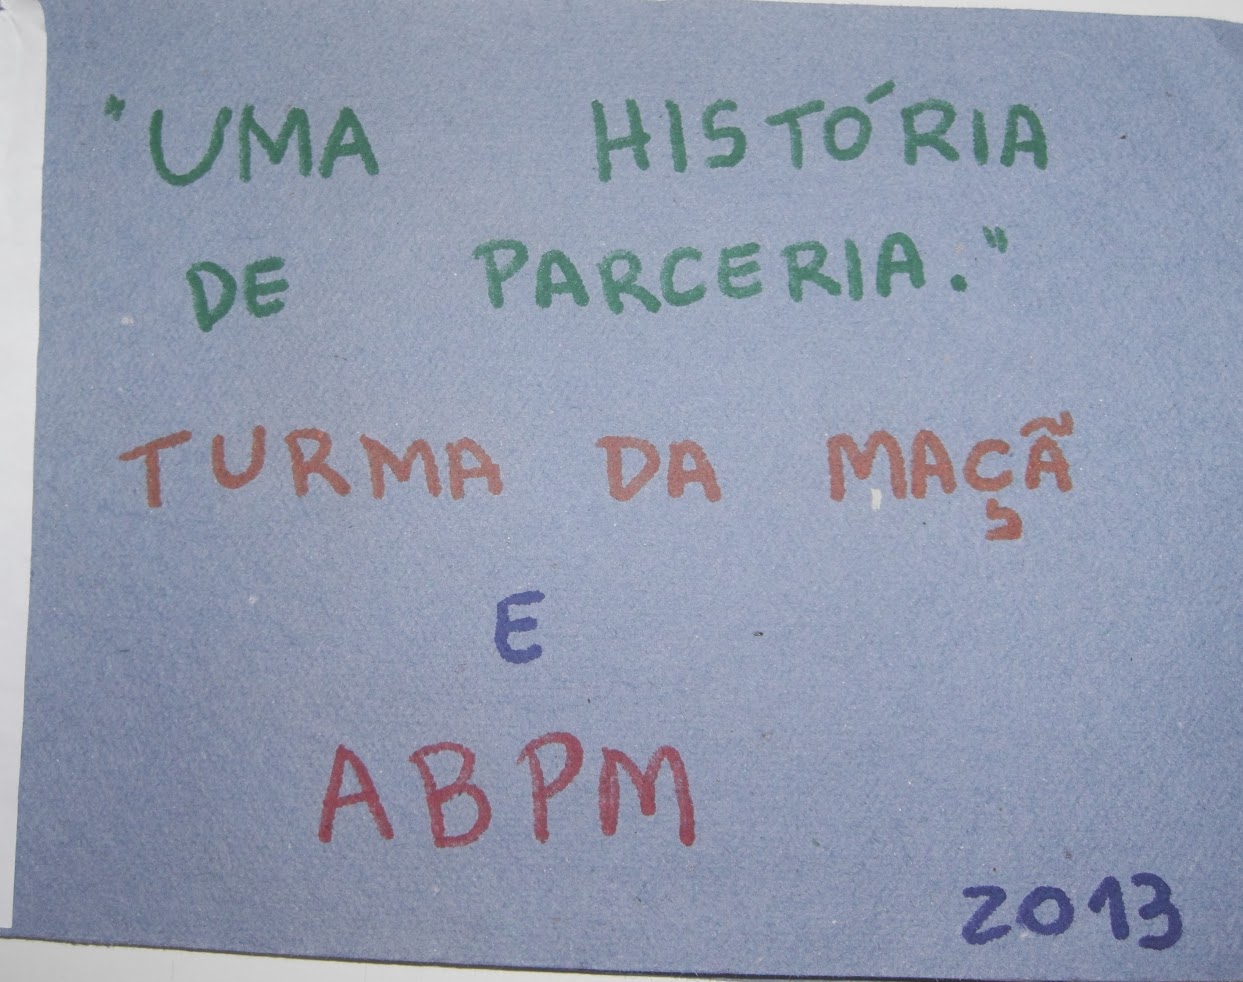 "UMA HISTÓRIA
DE PARCERIA."
TURMA DA MAÇÃ
E
ABPM
2013